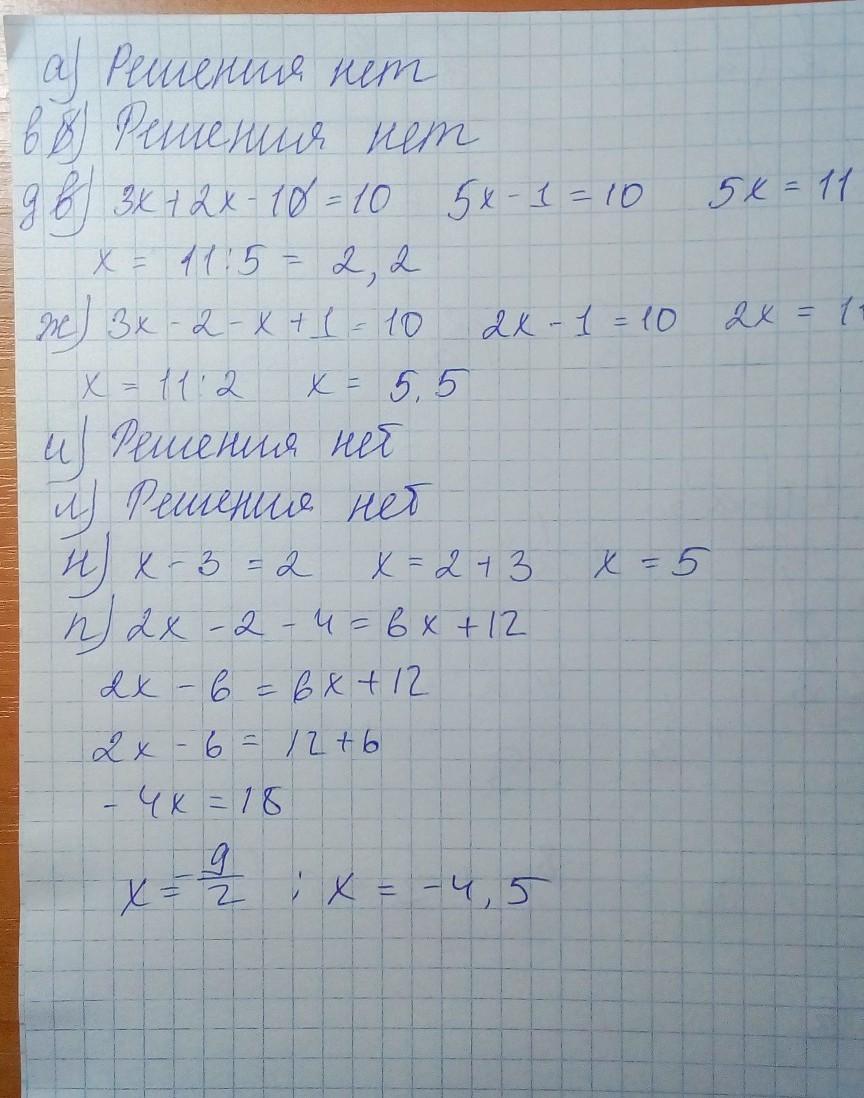 а) Решения нет
в) Решения нет
д) 3x + 2x - 1 = 10 5x - 1 = 10 5x = 11
x = 11:5 = 2,2
ж) 3x - 2 - x + 1 = 10 2x - 1 = 10 2x = 11
x = 11:2 x = 5,5
и) Решения нет
л) Решения нет
н) x - 3 = 2 x = 2 + 3 x = 5
п) 2x - 2 - 4 = 6x + 12
2x - 6 = 6x + 12
2x - 6 = 12 + 6
- 4x = 18
x = -9/2 ; x = -4,5